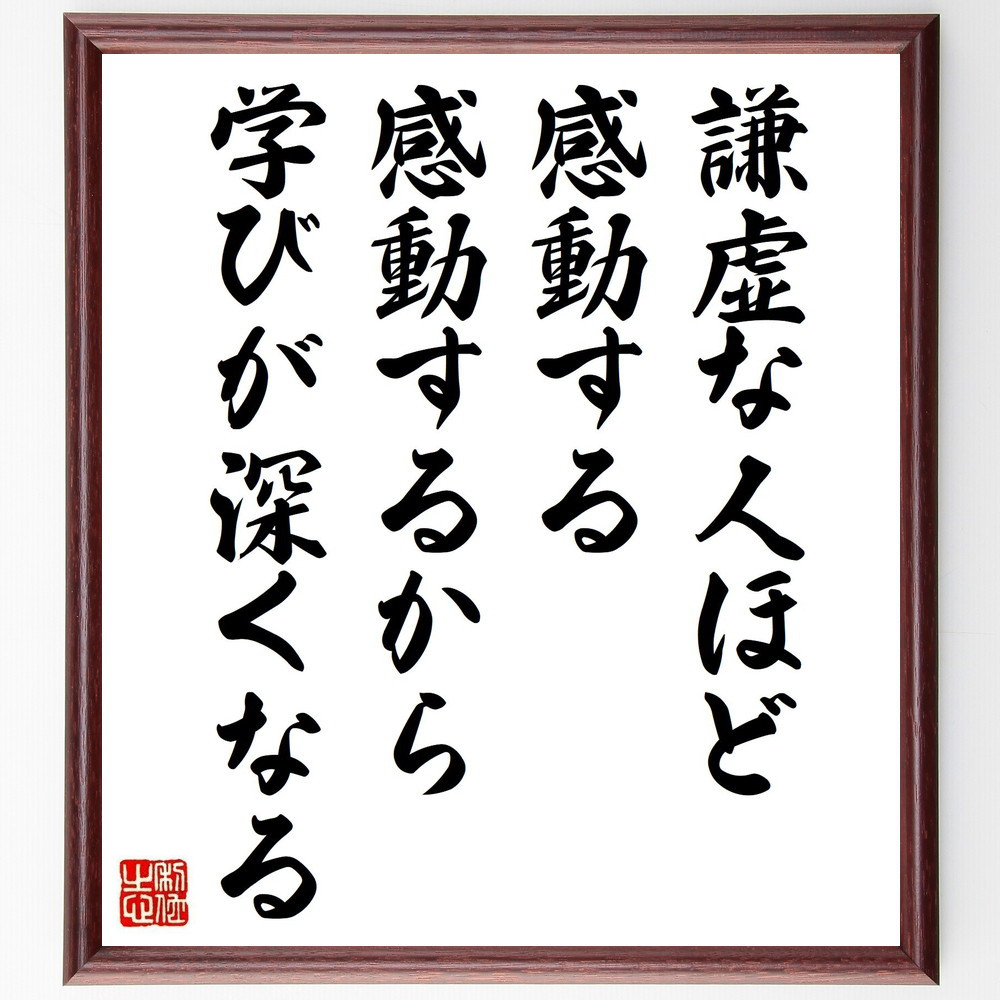 謙虚な人ほど
感動する
感動するから
学びが深くなる